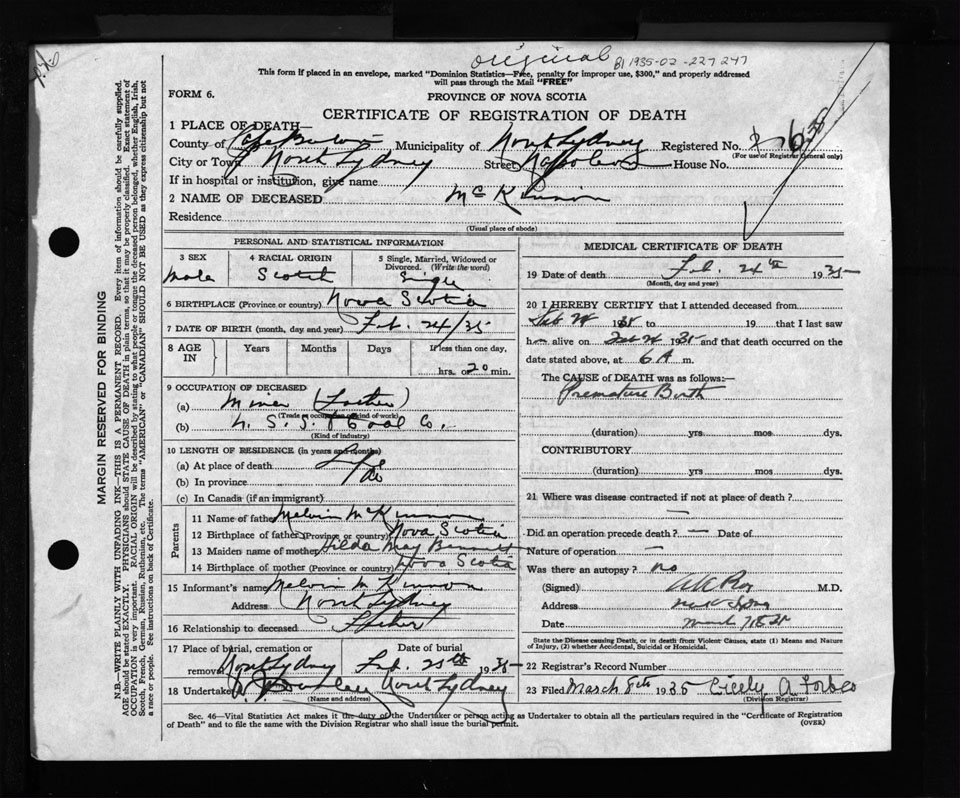 Original B1 1935-02-227247
This form if placed in an envelope, marked "Dominion Statistics—Free, penalty for improper use, $300," and properly addressed
will pass through the Mail "FREE"
FORM 6.
PROVINCE OF NOVA SCOTIA
CERTIFICATE OF REGISTRATION OF DEATH
1 PLACE OF DEATH—
County of Cape Breton Municipality of North Sydney Registered No.
(For use of Registrar General only)
City or Town North Sydney Street House No.
If in hospital or institution, give name
2 NAME OF DECEASED McKinnon
Residence
(Usual place of abode)
PERSONAL AND STATISTICAL INFORMATION
3 SEX 4 RACIAL ORIGIN 5 Single, Married, Widowed or
Divorced. (Write the word)
Male Scotch Single
6 BIRTHPLACE (Province or country) Nova Scotia
7 DATE OF BIRTH (month, day and year) Feb. 24/35
8 AGE IN Years Months Days If less than one day,
hrs. or 20 min.
9 OCCUPATION OF DECEASED
(a) Miner (Father)
(Trade or occupation or kind of work)
(b) N. S. S. & Coal Co.
(Kind of industry)
10 LENGTH OF RESIDENCE (in years and months)
(a) At place of death Life
(b) In province do
(c) In Canada (if an immigrant)
Parents
11 Name of father Melvin McKinnon
12 Birthplace of father (Province or country) Nova Scotia
13 Maiden name of mother Hilda May
14 Birthplace of mother (Province or country) Nova Scotia
15 Informant's name Melvin McKinnon
Address North Sydney
16 Relationship to deceased Father
17 Place of burial, cremation or removal North Sydney Date of burial Feb. 25th 1935
18 Undertaker North Sydney
(Name and address)
MEDICAL CERTIFICATE OF DEATH
19 Date of death Feb. 24th 1935
(Month, day and year)
20 I HEREBY CERTIFY that I attended deceased from
Feb 24 1935 to 19 that I last saw
h alive on Feb 24 1935 and that death occurred on the
date stated above, at 6 A m.
The CAUSE of DEATH was as follows:—
Premature Birth
(duration) yrs mos dys.
CONTRIBUTORY
(duration) yrs mos dys.
21 Where was disease contracted if not at place of death?
—
Did an operation precede death? — Date of
Nature of operation —
Was there an autopsy? no
(Signed) Roy M.D.
Address
Date March
State the Disease causing Death, or in death from Violent Causes, state (1) Means and Nature
of Injury, (2) whether Accidental, Suicidal or Homicidal.
22 Registrar's Record Number
23 Filed March 8th 1935 Cicely A. Forbes
(Division Registrar)
Sec. 46—Vital Statistics Act makes it the duty of the Undertaker or person acting as Undertaker to obtain all the particulars required in the "Certificate of Registration
of Death" and to file the same with the Division Registrar who shall issue the burial permit.
(OVER)
MARGIN RESERVED FOR BINDING
N.B.—WRITE PLAINLY WITH UNFADING INK—THIS IS A PERMANENT RECORD. Every item of information should be carefully supplied.
AGE should be stated EXACTLY. PHYSICIANS should STATE CAUSE OF DEATH in plain terms, so that it may be properly classified. Exact statement of
OCCUPATION is very important. RACIAL ORIGIN will be described by stating to what people or tongue the deceased person belonged, whether English, Irish,
Scotch, French, German, Russian, Ruthenian, etc. The terms "AMERICAN" or "CANADIAN" SHOULD NOT BE USED as they express citizenship but not
a race or people. See instructions on back of Certificate.